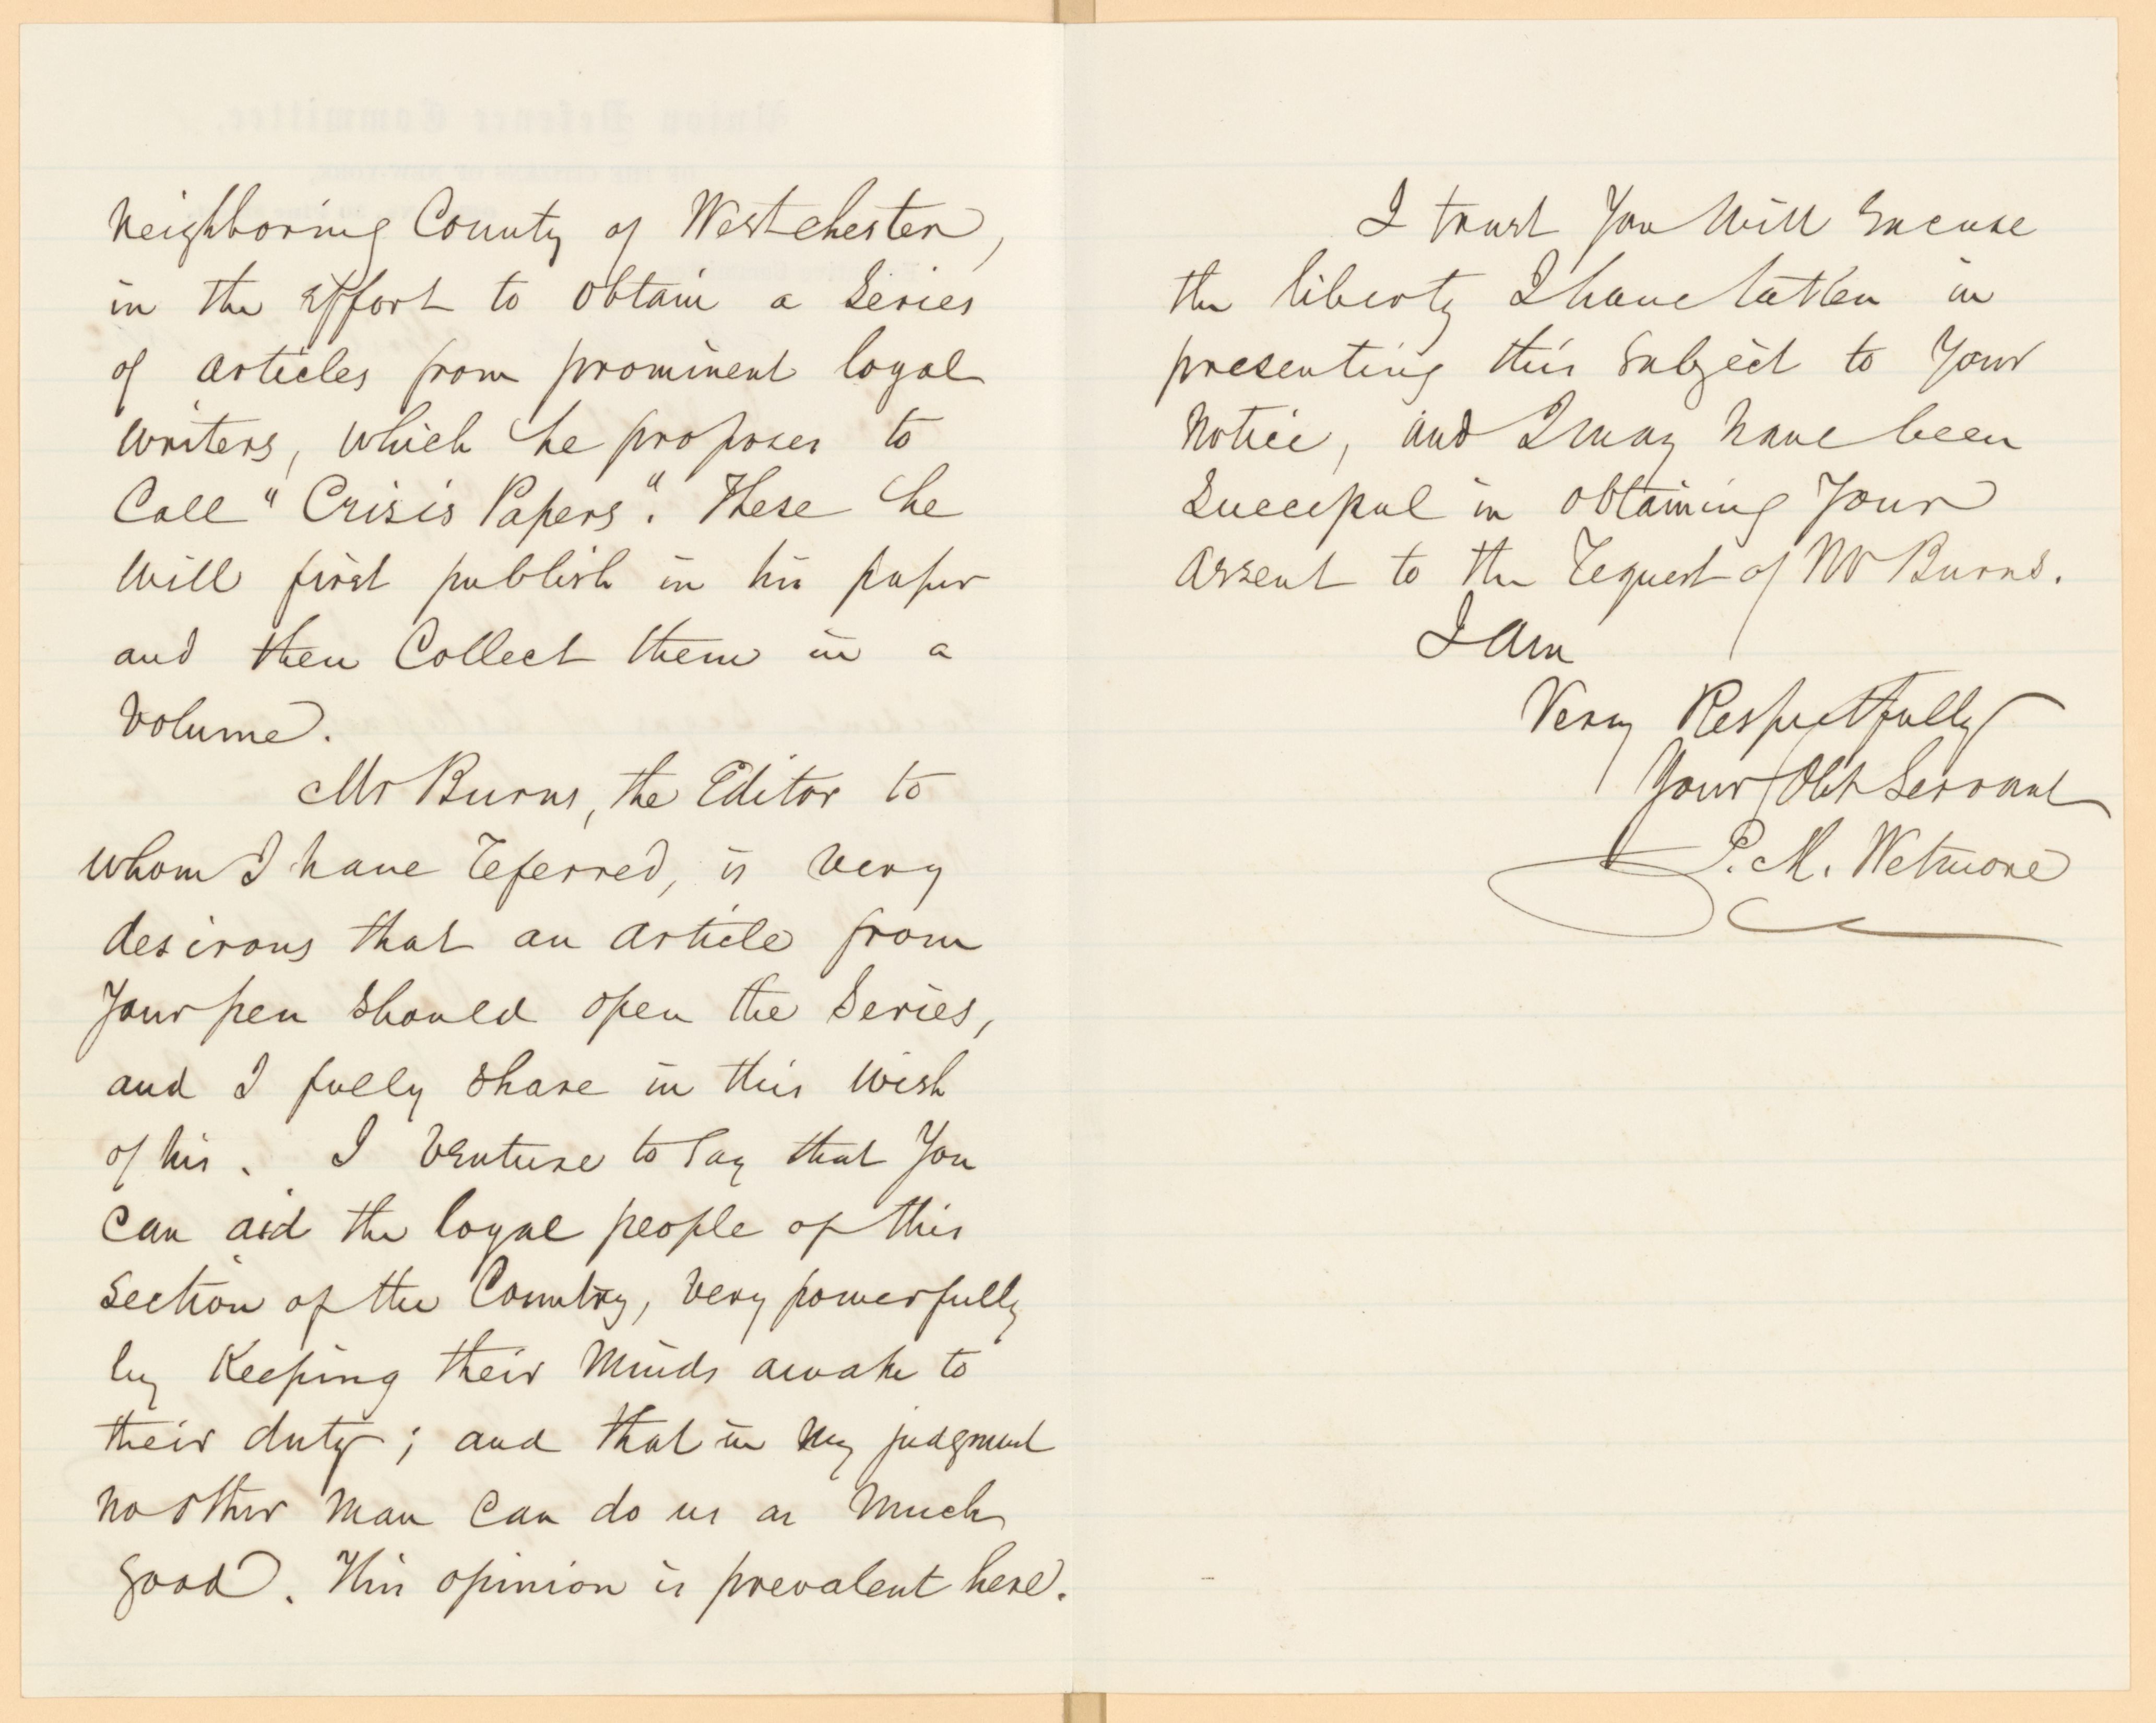 neighboring County of Westchester,
in the effort to obtain a Series
of articles from prominent loyal
writers, which he proposes to
Call "Crisis Papers". These he
will first publish in his paper
and then Collect them in a
volume.
Mr Burns, the Editor to
whom I have referred, is very
desirous that an article from
Your pen should open the Series,
and I fully share in this wish
of his. I venture to say that You
can aid the loyal people of this
Section of the Country, very powerfully
by Keeping their Minds awake to
their duty; and that in my judgment
no other man can do us as much
good. This opinion is prevalent here.
I trust You will excuse
the liberty I have taken in
presenting this Subject to Your
Notice, and I may have been
Successful in obtaining Your
assent to the request of Mr Burns.
I am
Very Respectfully
Your Obt Servant
P. M. Wetmore